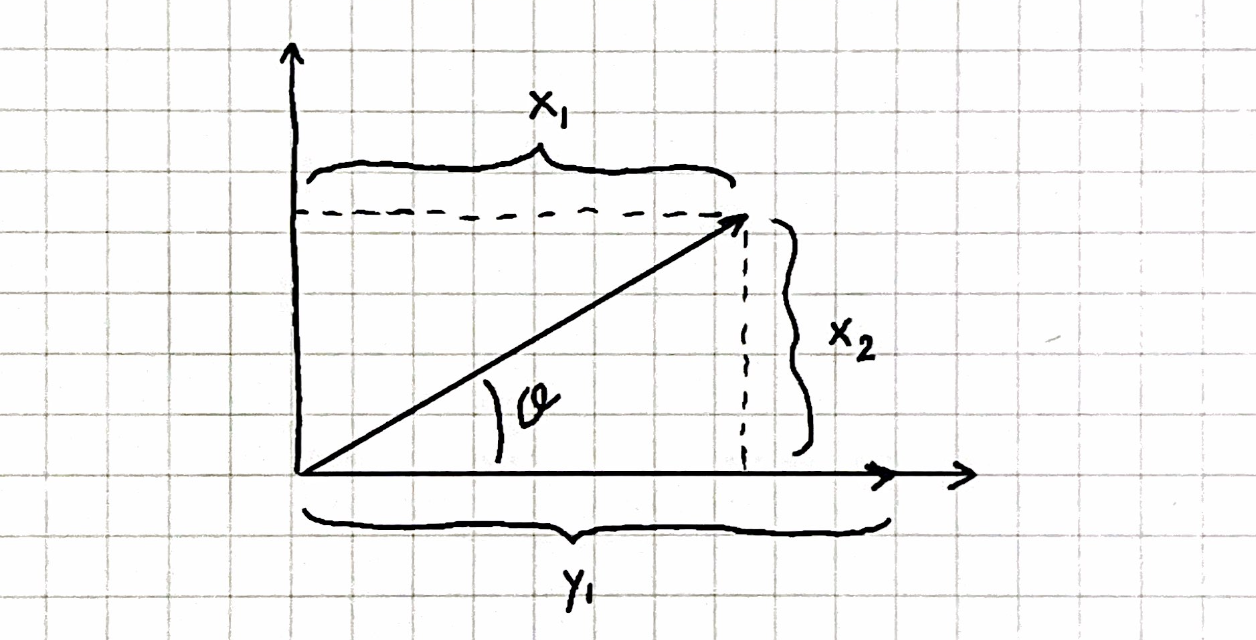 x₁
x₂
θ
y₁